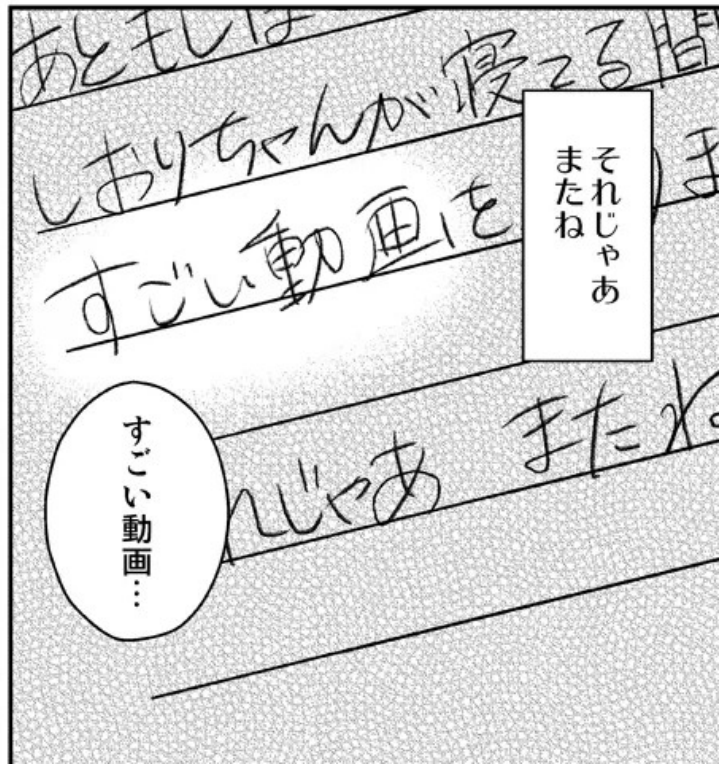 あともしは
しおりちゃんが寝てる間
すごい動画を
それじゃあ
またね
んじゃあ またね
すごい動画…